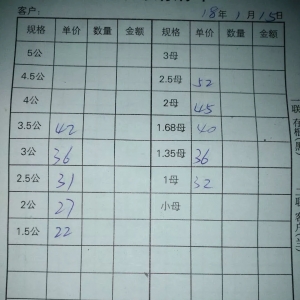 客户: 18年1月15日
规格 单价 数量 金额 规格 单价 数量 金额
5公 3母
4.5公 2.5母 52
4公 2母 45
3.5公 42 1.68母 40
3公 36 1.35母 36
2.5公 31 1母 32
2公 27 小母
1.5公 22